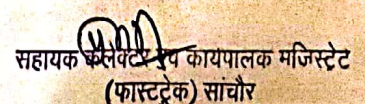 सहायक कलेक्टर एवं कार्यपालक मजिस्ट्रेट
(फास्टट्रेक) सांचौर